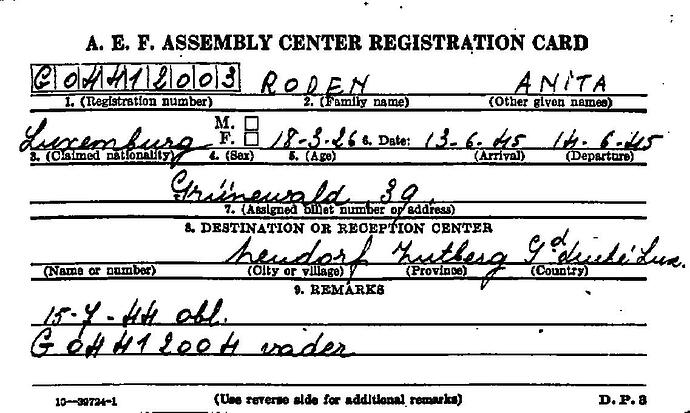 A. E. F. ASSEMBLY CENTER REGISTRATION CARD
G 0 4 4 1 2 0 0 3 RODEN ANITA
1. (Registration number) 2. (Family name) (Other given names)
M. ☐
Luxemburg F. ☐ 18-3-26 6. Date: 13-6-45 14-6-45
3. (Claimed nationality) 4. (Sex) 5. (Age) (Arrival) (Departure)
Grünewald 39
7. (Assigned billet number or address)
8. DESTINATION OR RECEPTION CENTER
Neudorf Gd duché Lux.
(Name or number) (City or village) (Province) (Country)
9. REMARKS
15-7-44 obl.
G 04412004 vader
16—39724-1 (Use reverse side for additional remarks) D. P. 3